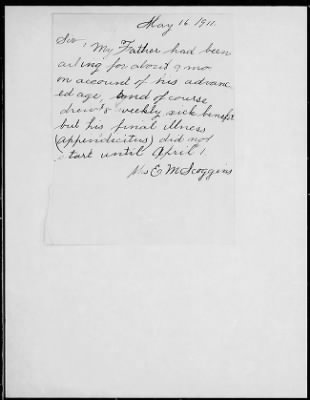 May 16 1911.
Sir, My Father had been
ailing for about 9 mo
on account of his advanc
ed age, and of course
drew weekly sick benefit
but his final illness
(appendecitus) did not
start until April 1.
E M Scoggins